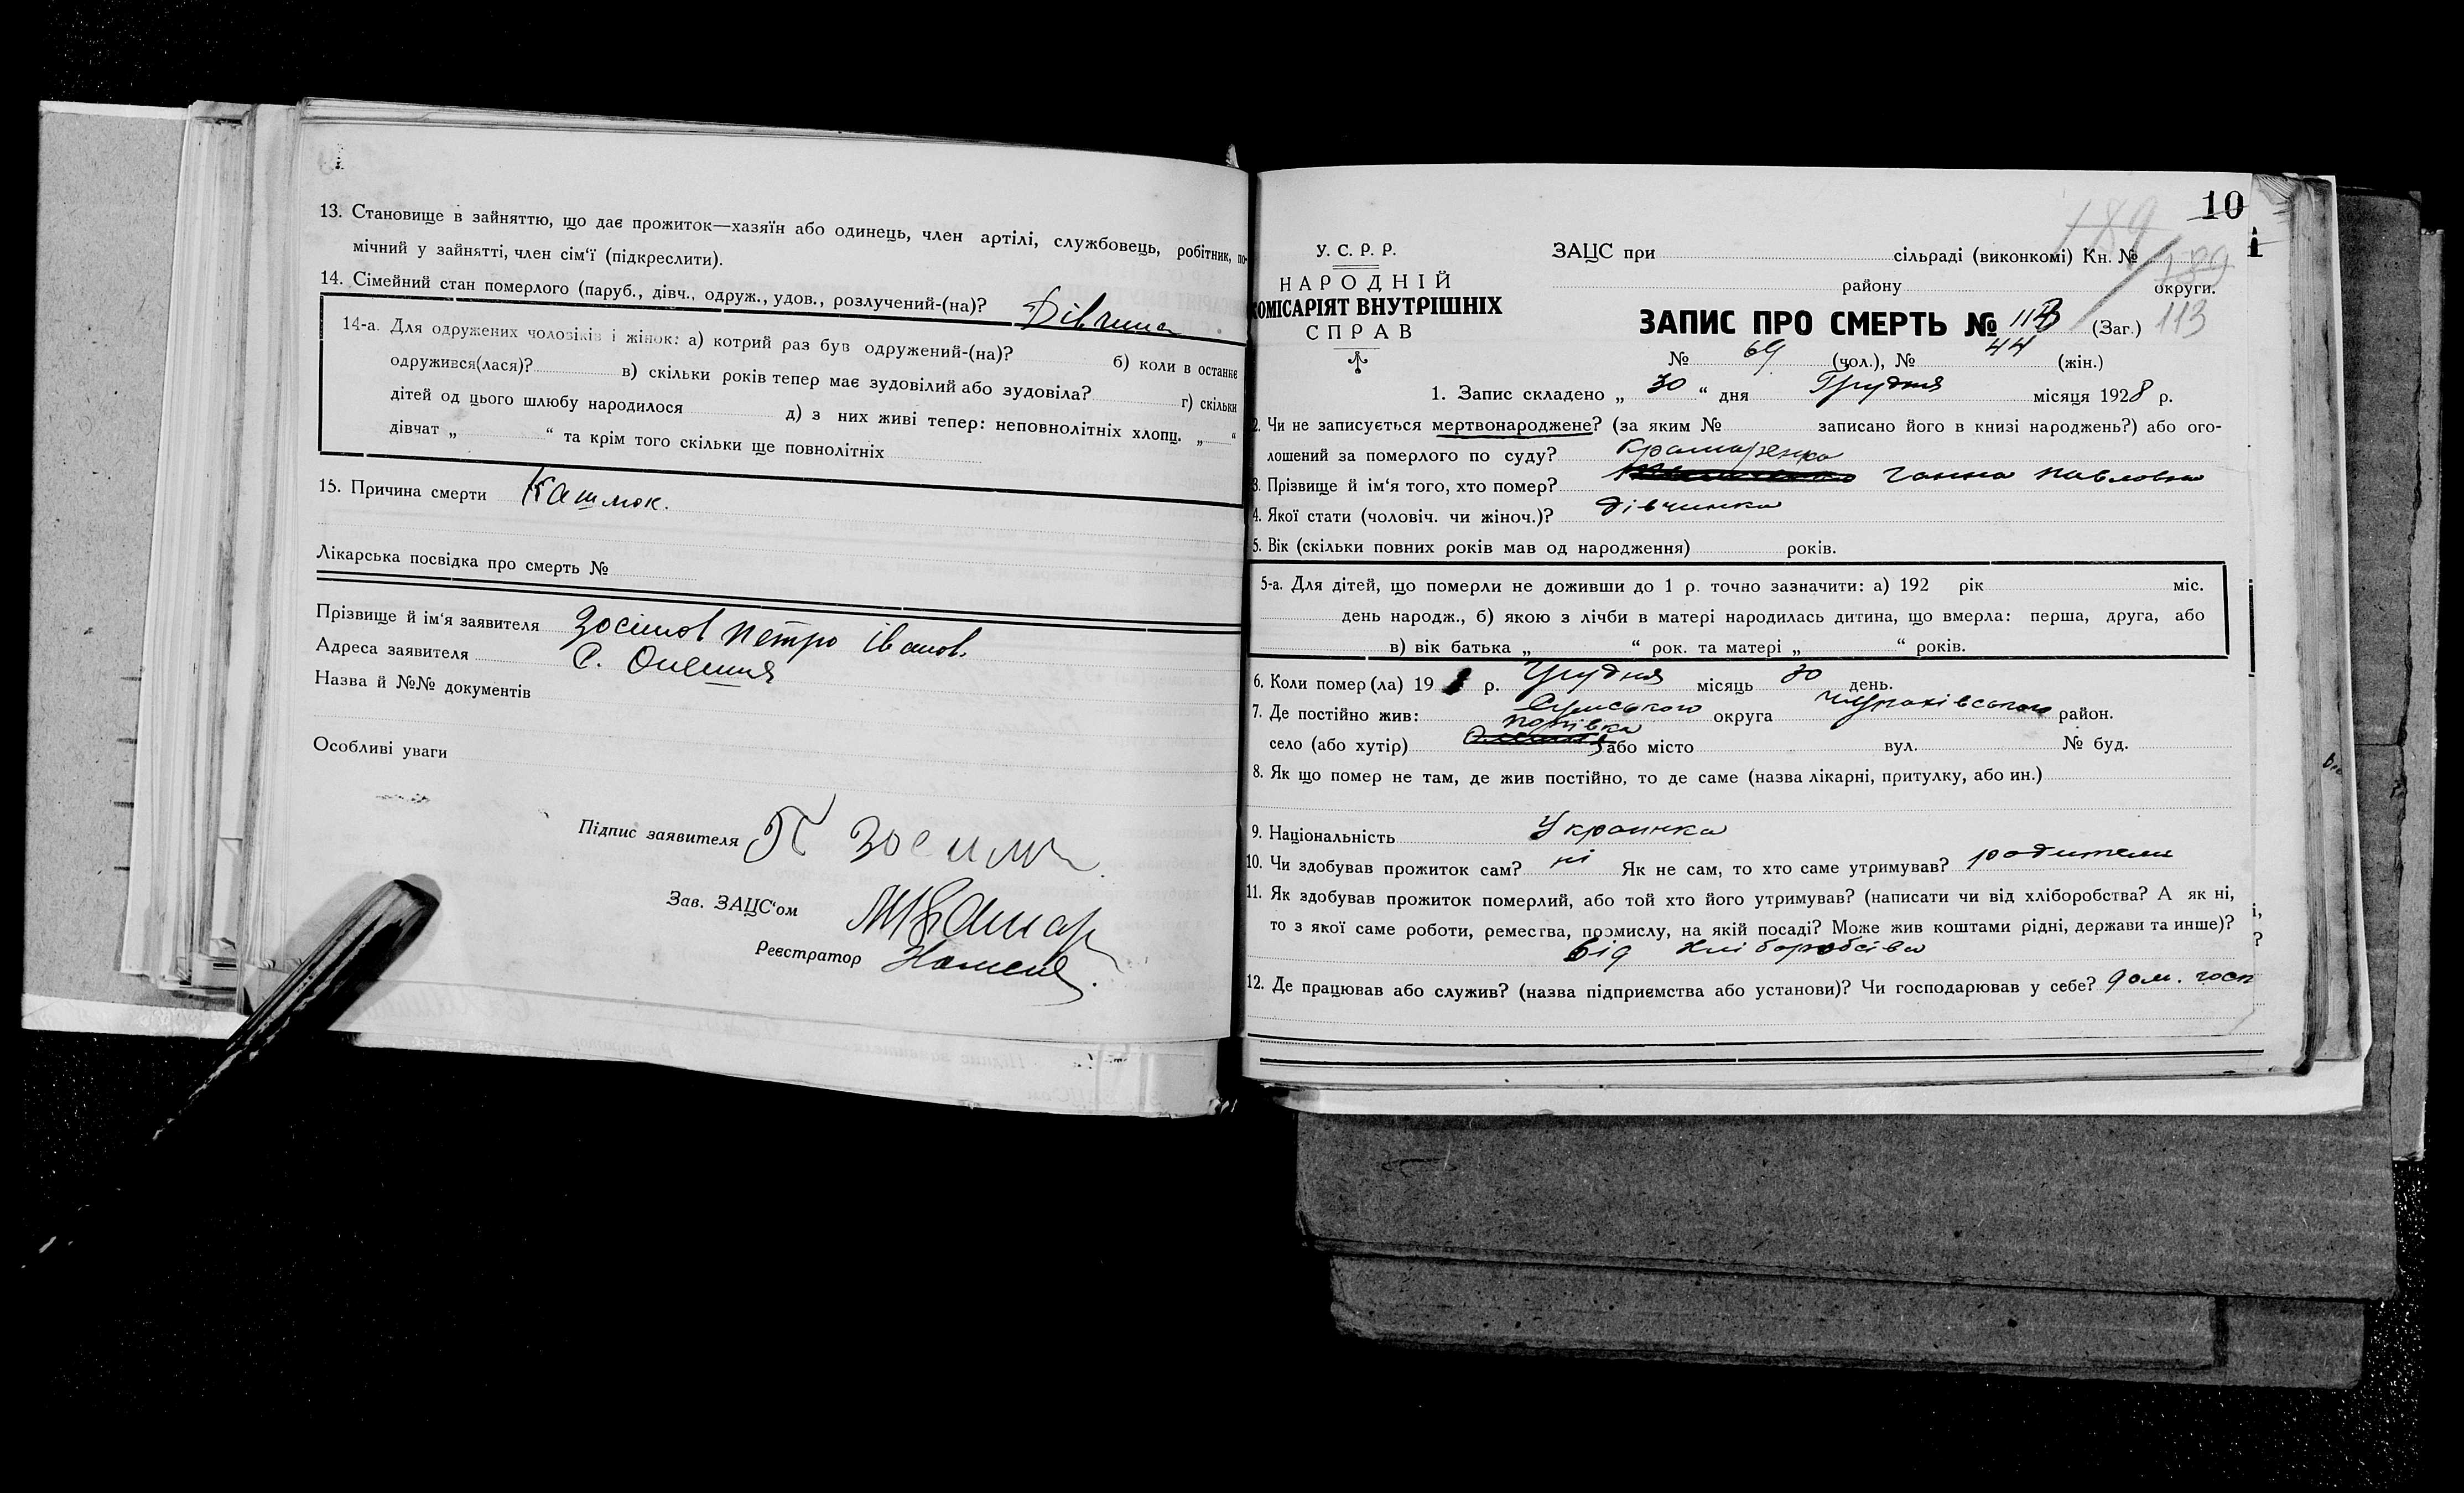 13. Становище в зайняттю, що дає прожиток—хазяїн або одинець, член артілі, службовець, робітник, по-
мічний у зайнятті, член сім‘ї (підкреслити).
14. Сімейний стан померлого (паруб., дівч., одруж., удов., розлучений-(на)? Дівчина
14-а. Для одружених чоловіків і жінок: а) котрий раз був одружений-(на)? б) коли в останнє
одружився(лася)? в) скільки років тепер має зудовілий або зудовіла? г) скільки
дітей од цього шлюбу народилося д) з них живі тепер: неповнолітніх хлопц. „ “
дівчат „ “ та крім того скільки ще повнолітніх
15. Причина смерти Кашлюк.
Лікарська посвідка про смерть №
Прізвище й ім‘я заявителя Зосімов Петро Іванов.
Адреса заявителя С.
Назва й №№ документів
Особливі уваги
Підпис заявителя П Зосим
Зав. ЗАЦС‘ом
Реєстратор
10
189
У. С. Р. Р.
НАРОДНІЙ
КОМІСАРІЯТ ВНУТРІШНІХ
СПРАВ
ЗАЦС при сільраді (виконкомі) Кн. №
району округи.
ЗАПИС ПРО СМЕРТЬ № 113 (Заг.) 113
№ 69 (чол.), № 44 (жін.)
1. Запис складено „ 30 “ дня Грудня місяця 1928 р.
2. Чи не записується мертвонароджене? (за яким № записано його в книзі народжень?) або ого-
лошений за померлого по суду? Крамаренко
3. Прізвище й ім‘я того, хто помер? Ганна Павловна
4. Якої стати (чоловіч. чи жіноч.)? дівчинка
5. Вік (скільки повних років мав од народження) років.
5-а. Для дітей, що померли не доживши до 1 р. точно зазначити: а) 192 рік міс.
день народж., б) якою з лічби в матері народилась дитина, що вмерла: перша, друга, або
в) вік батька „ “ рок. та матері „ “ років.
6. Коли помер(ла) 19 р. Грудня місяць 30 день.
7. Де постійно жив: Сумського округа район.
село (або хутір) Попівка або місто вул. № буд.
8. Як що помер не там, де жив постійно, то де саме (назва лікарні, притулку, або ин.)
9. Національність Украинка
10. Чи здобував прожиток сам? ні Як не сам, то хто саме утримував? родители
11. Як здобував прожиток померлий, або той хто його утримував? (написати чи від хліборобства? А як ні,
то з якої саме роботи, ремества, промислу, на якій посаді? Може жив коштами рідні, держави та инше)?
від хліборобсіва
12. Де працював або служив? (назва підприємства або установи)? Чи господарював у себе? дом. госп